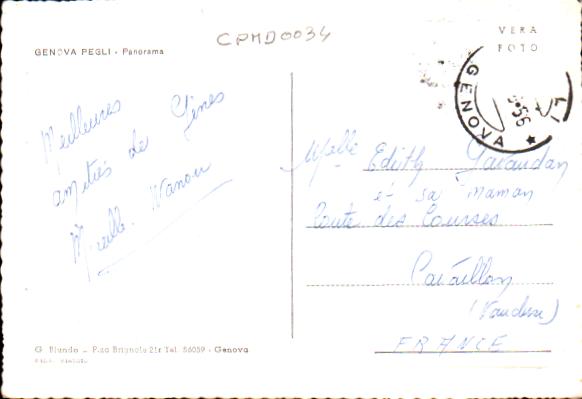 CPMD0034
VERA
FOTO
GENOVA PEGLI - Panorama
GENOVA
56
Meilleures
amitiés de Gênes
Mireille. Nanou
Melle Edith
et sa maman
Route des Courses
Cavaillon
(Vaucluse)
FRANCE
G. Blundo - P.za Brignole 21r Tel. 56059 - Genova